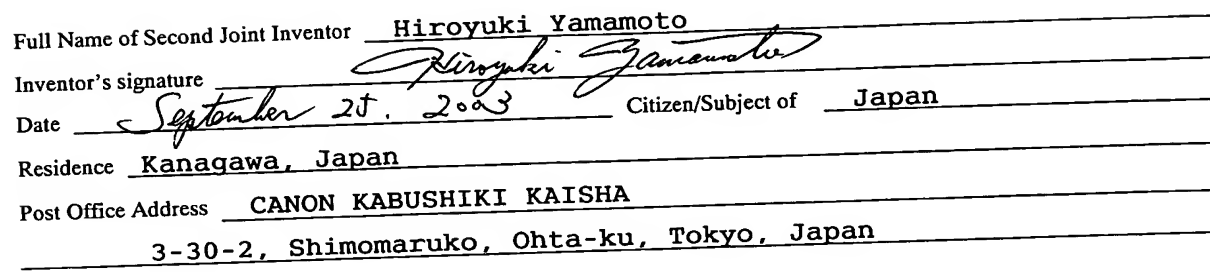 Full Name of Second Joint Inventor Hiroyuki Yamamoto
Inventor's signature Hiroyuki Yamamoto
Date September 25, 2003 Citizen/Subject of Japan
Residence Kanagawa, Japan
Post Office Address CANON KABUSHIKI KAISHA
3-30-2, Shimomaruko, Ohta-ku, Tokyo, Japan